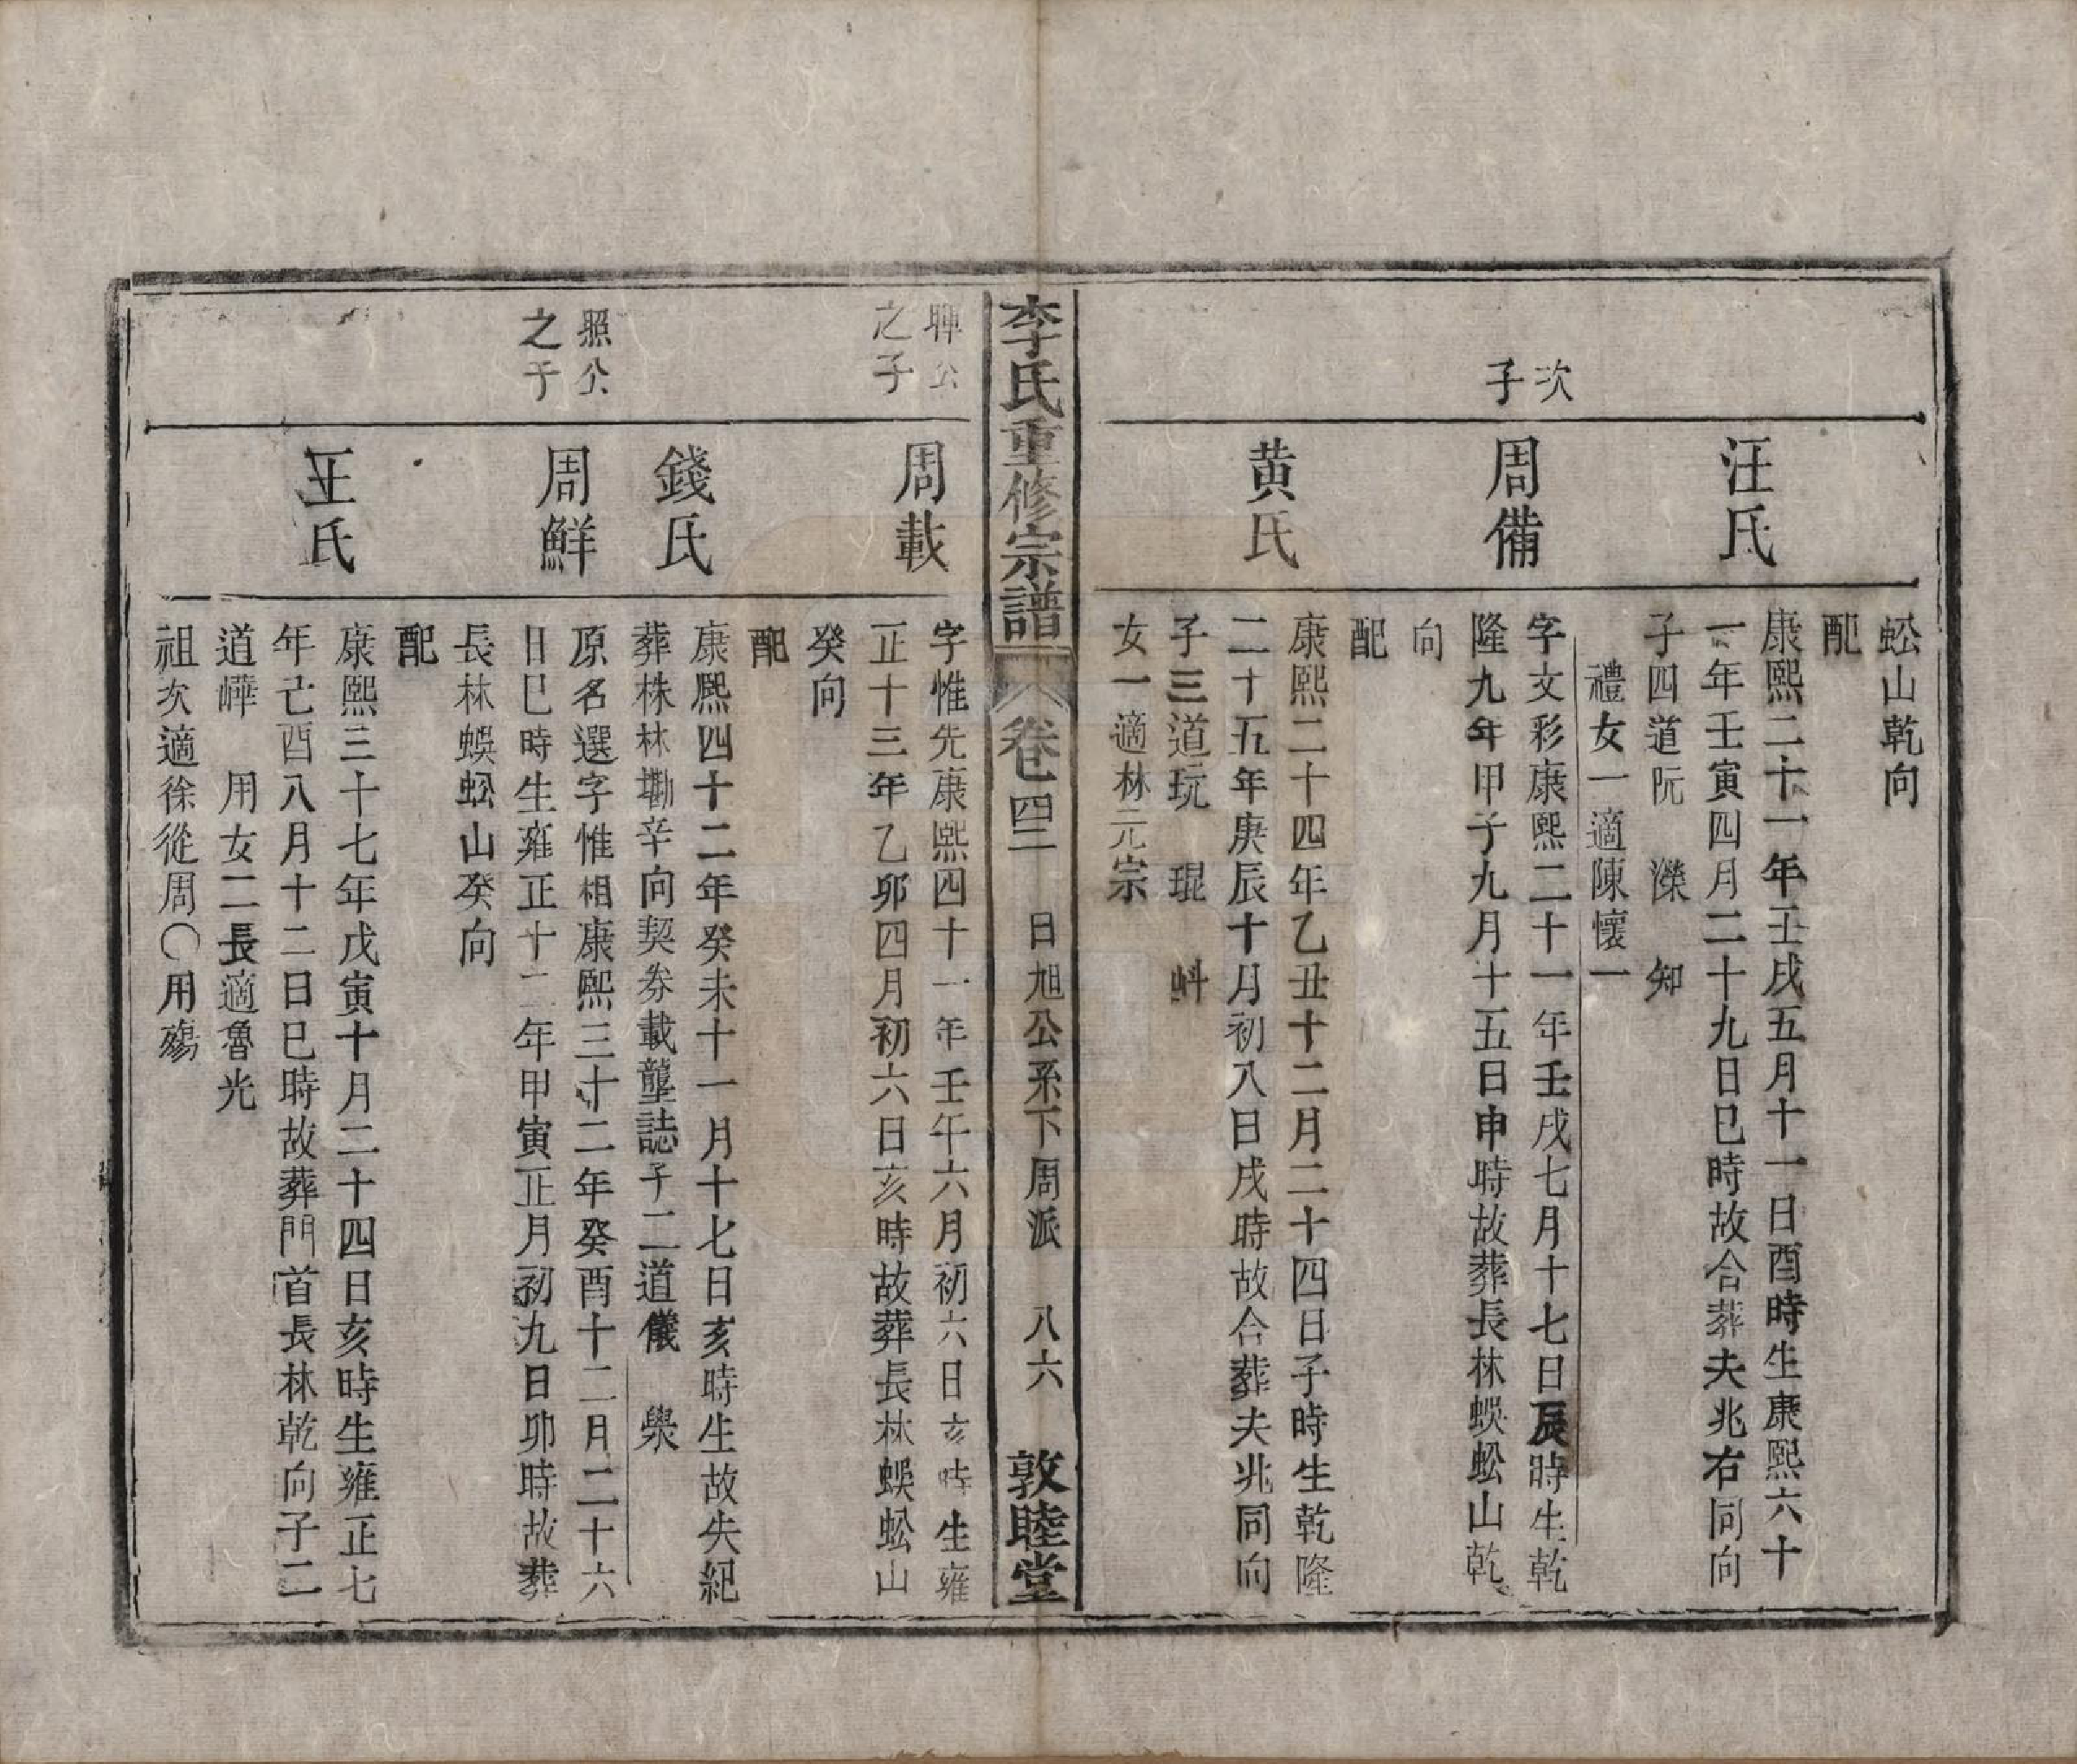 蚣山乾向
汪氏
配
康熙二十一年壬戌五月十一日酉時生康熙六十
一年壬寅四月二十九日巳時故合葬夫兆右同向
子四道阮　濼　知
禮女一適陳懷一
次
子
周備
字文彩康熙二十一年壬戌七月十七日辰時生乾
隆九年甲子九月十五日申時故葬長林蜈蚣山乾
向
黄氏
配
康熙二十四年乙丑十二月二十四日子時生乾隆
二十五年庚辰十月初八日戌時故合葬夫兆同向
子三道玩　琨　蚪
女一適林元宗
李氏重修宗譜　卷四　日旭公系下周派　八六　敦睦堂
公
之子
周載
字惟先康熙四十一年壬午六月初六日亥時生雍
正十三年乙卯四月初六日亥時故葬長林蜈蚣山
癸向
錢氏
配
康熙四十二年癸未十一月十七日亥時生故失紀
葬株林墈辛向契券載塟誌子二道儀　榘
照公
之子
周鮮
原名選字惟相康熙三十二年癸酉十二月二十六
日巳時生雍正十二年甲寅正月初九日卯時故葬
長林蜈蚣山癸向
王氏
配
康熙三十七年戊寅十月二十四日亥時生雍正七
年己酉八月十二日巳時故葬門首長林乾向子二
道嶂　用女二長適魯光
祖次適徐從周〇用殤